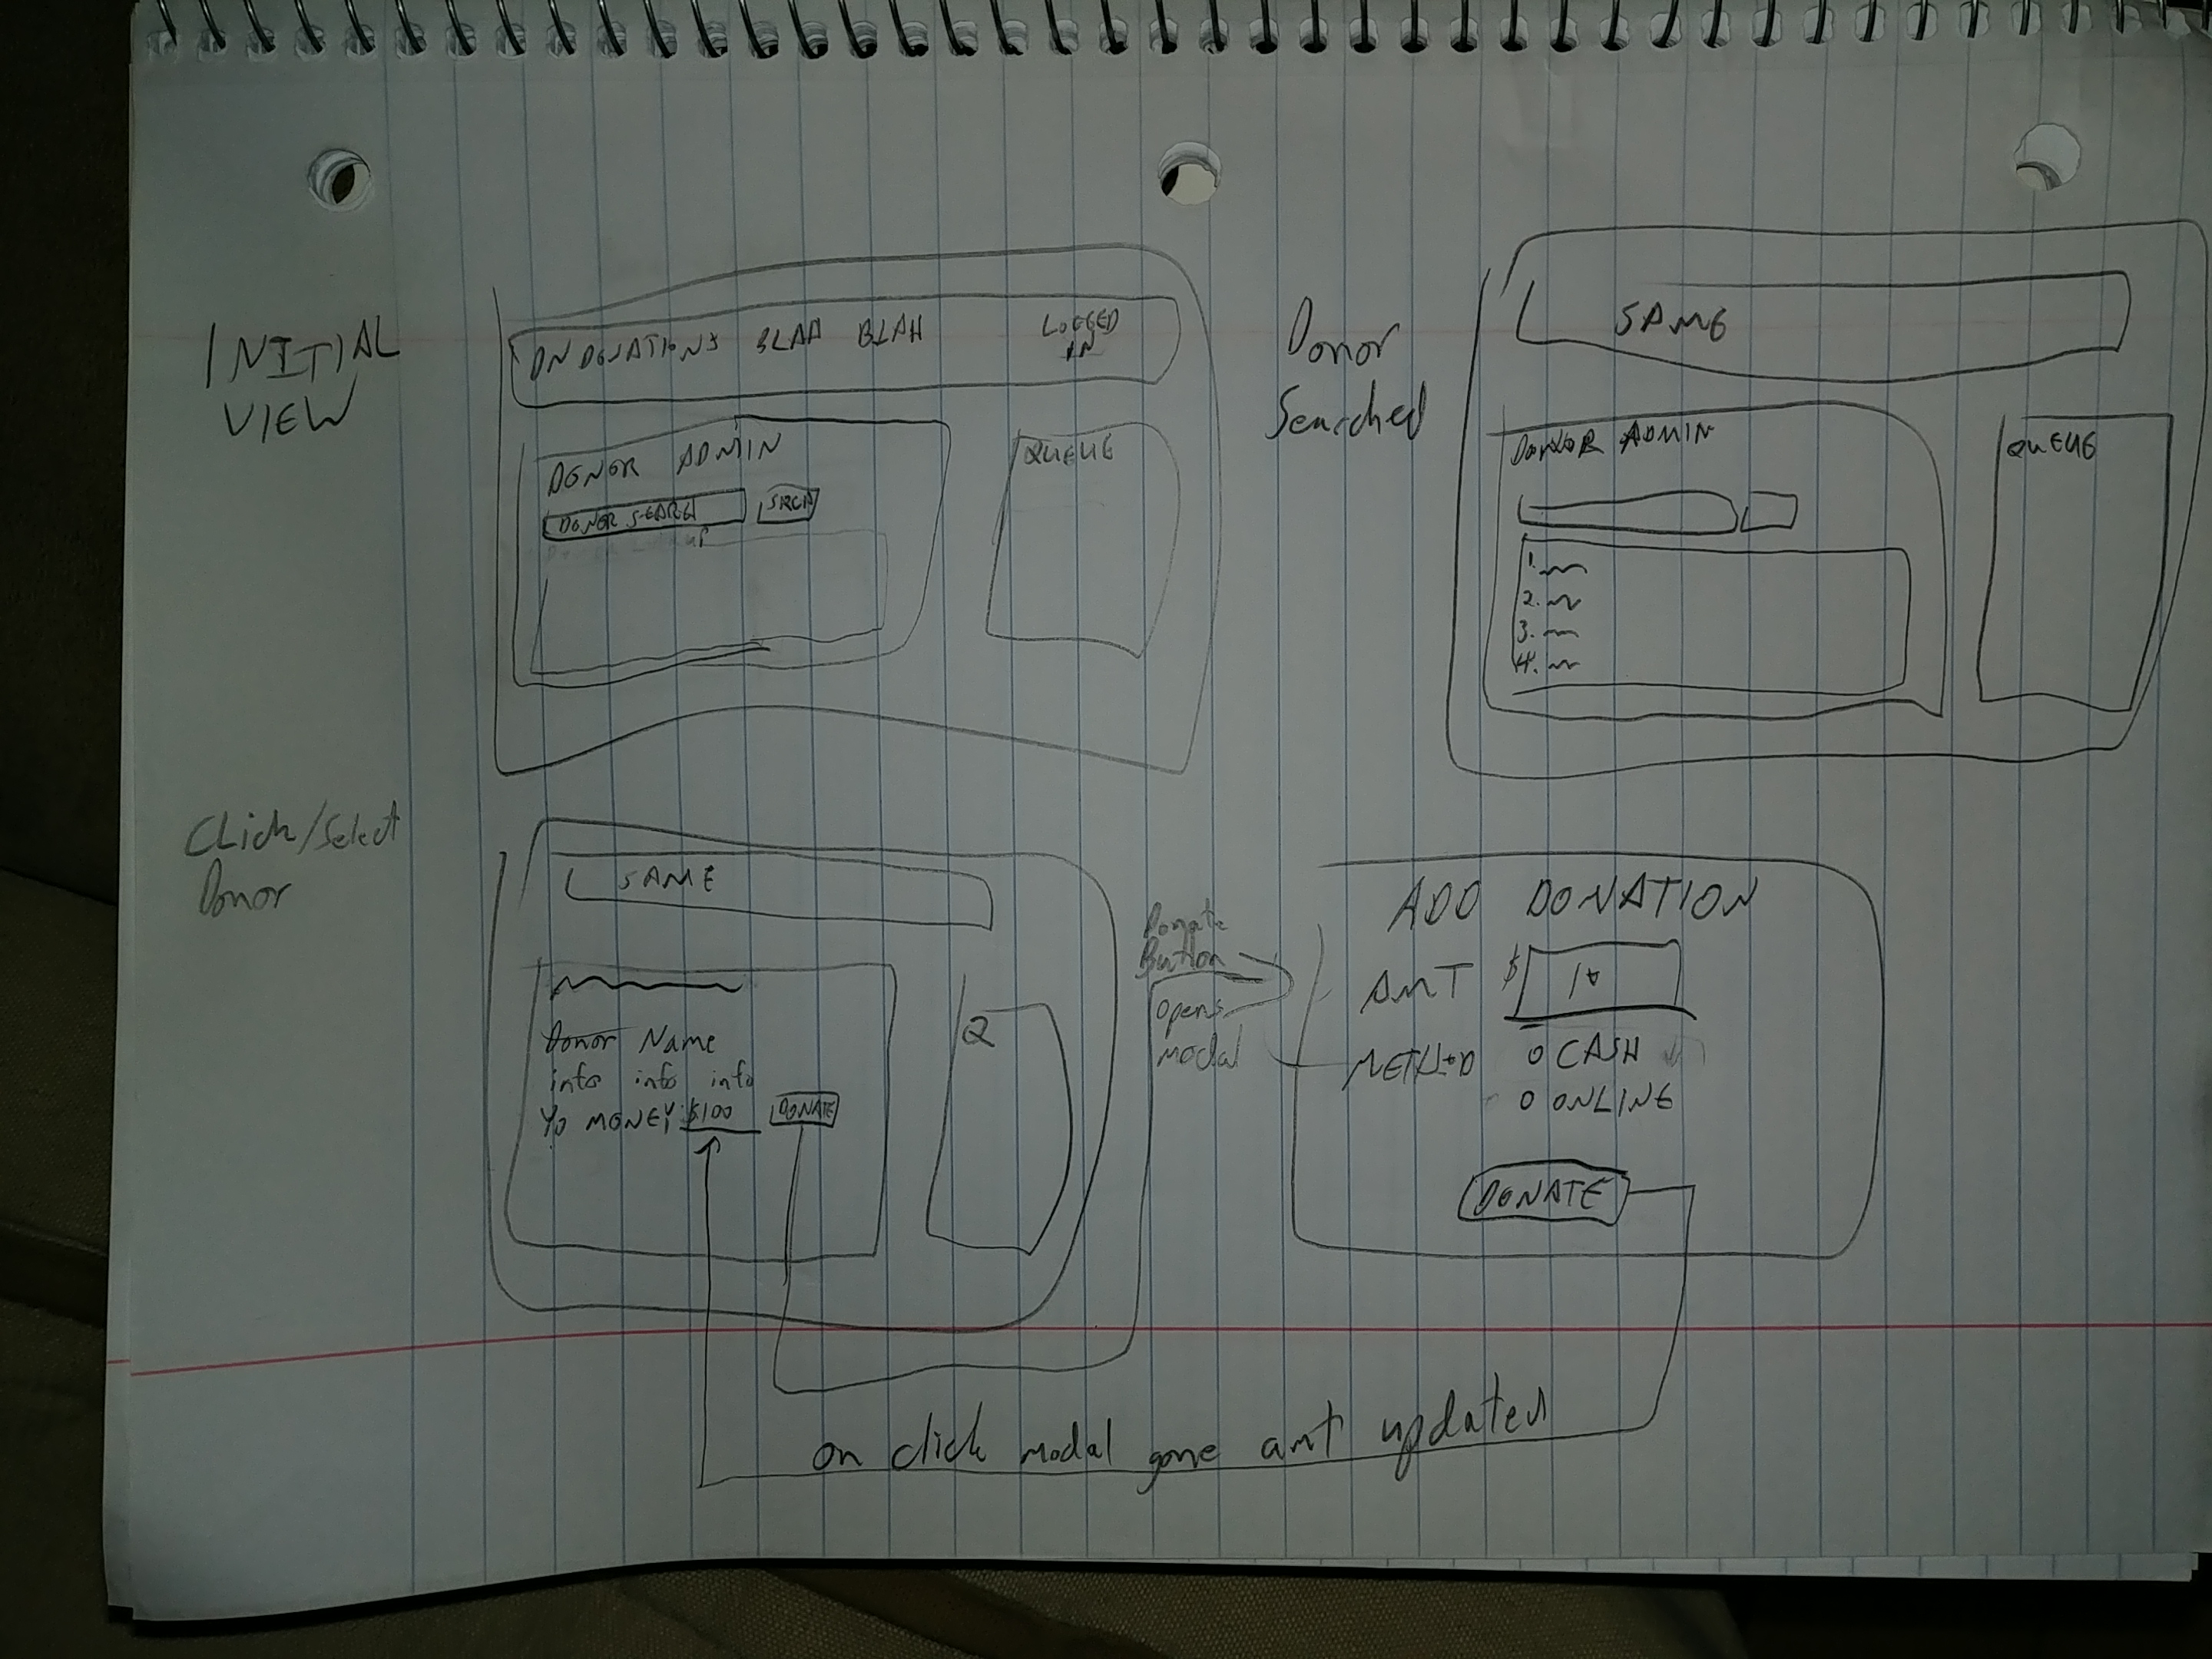 INITIAL
VIEW
DN DONATIONS BLAH BLAH LOGGED
IN
DONOR ADMIN
DONOR SEARCH SRCH
QUEUE
Donor
Searched
SAME
DONOR ADMIN
QUEUE
1.
2.
3.
4.
Click/Select
Donor
SAME
Donor Name
info info info
YO MONEY: $100 DONATE
Q
Donate
Button
opens
modal
ADD DONATION
AMT $
METHOD O CASH
O ONLINE
DONATE
on click modal gone amt updated